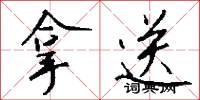 拿送
词典网